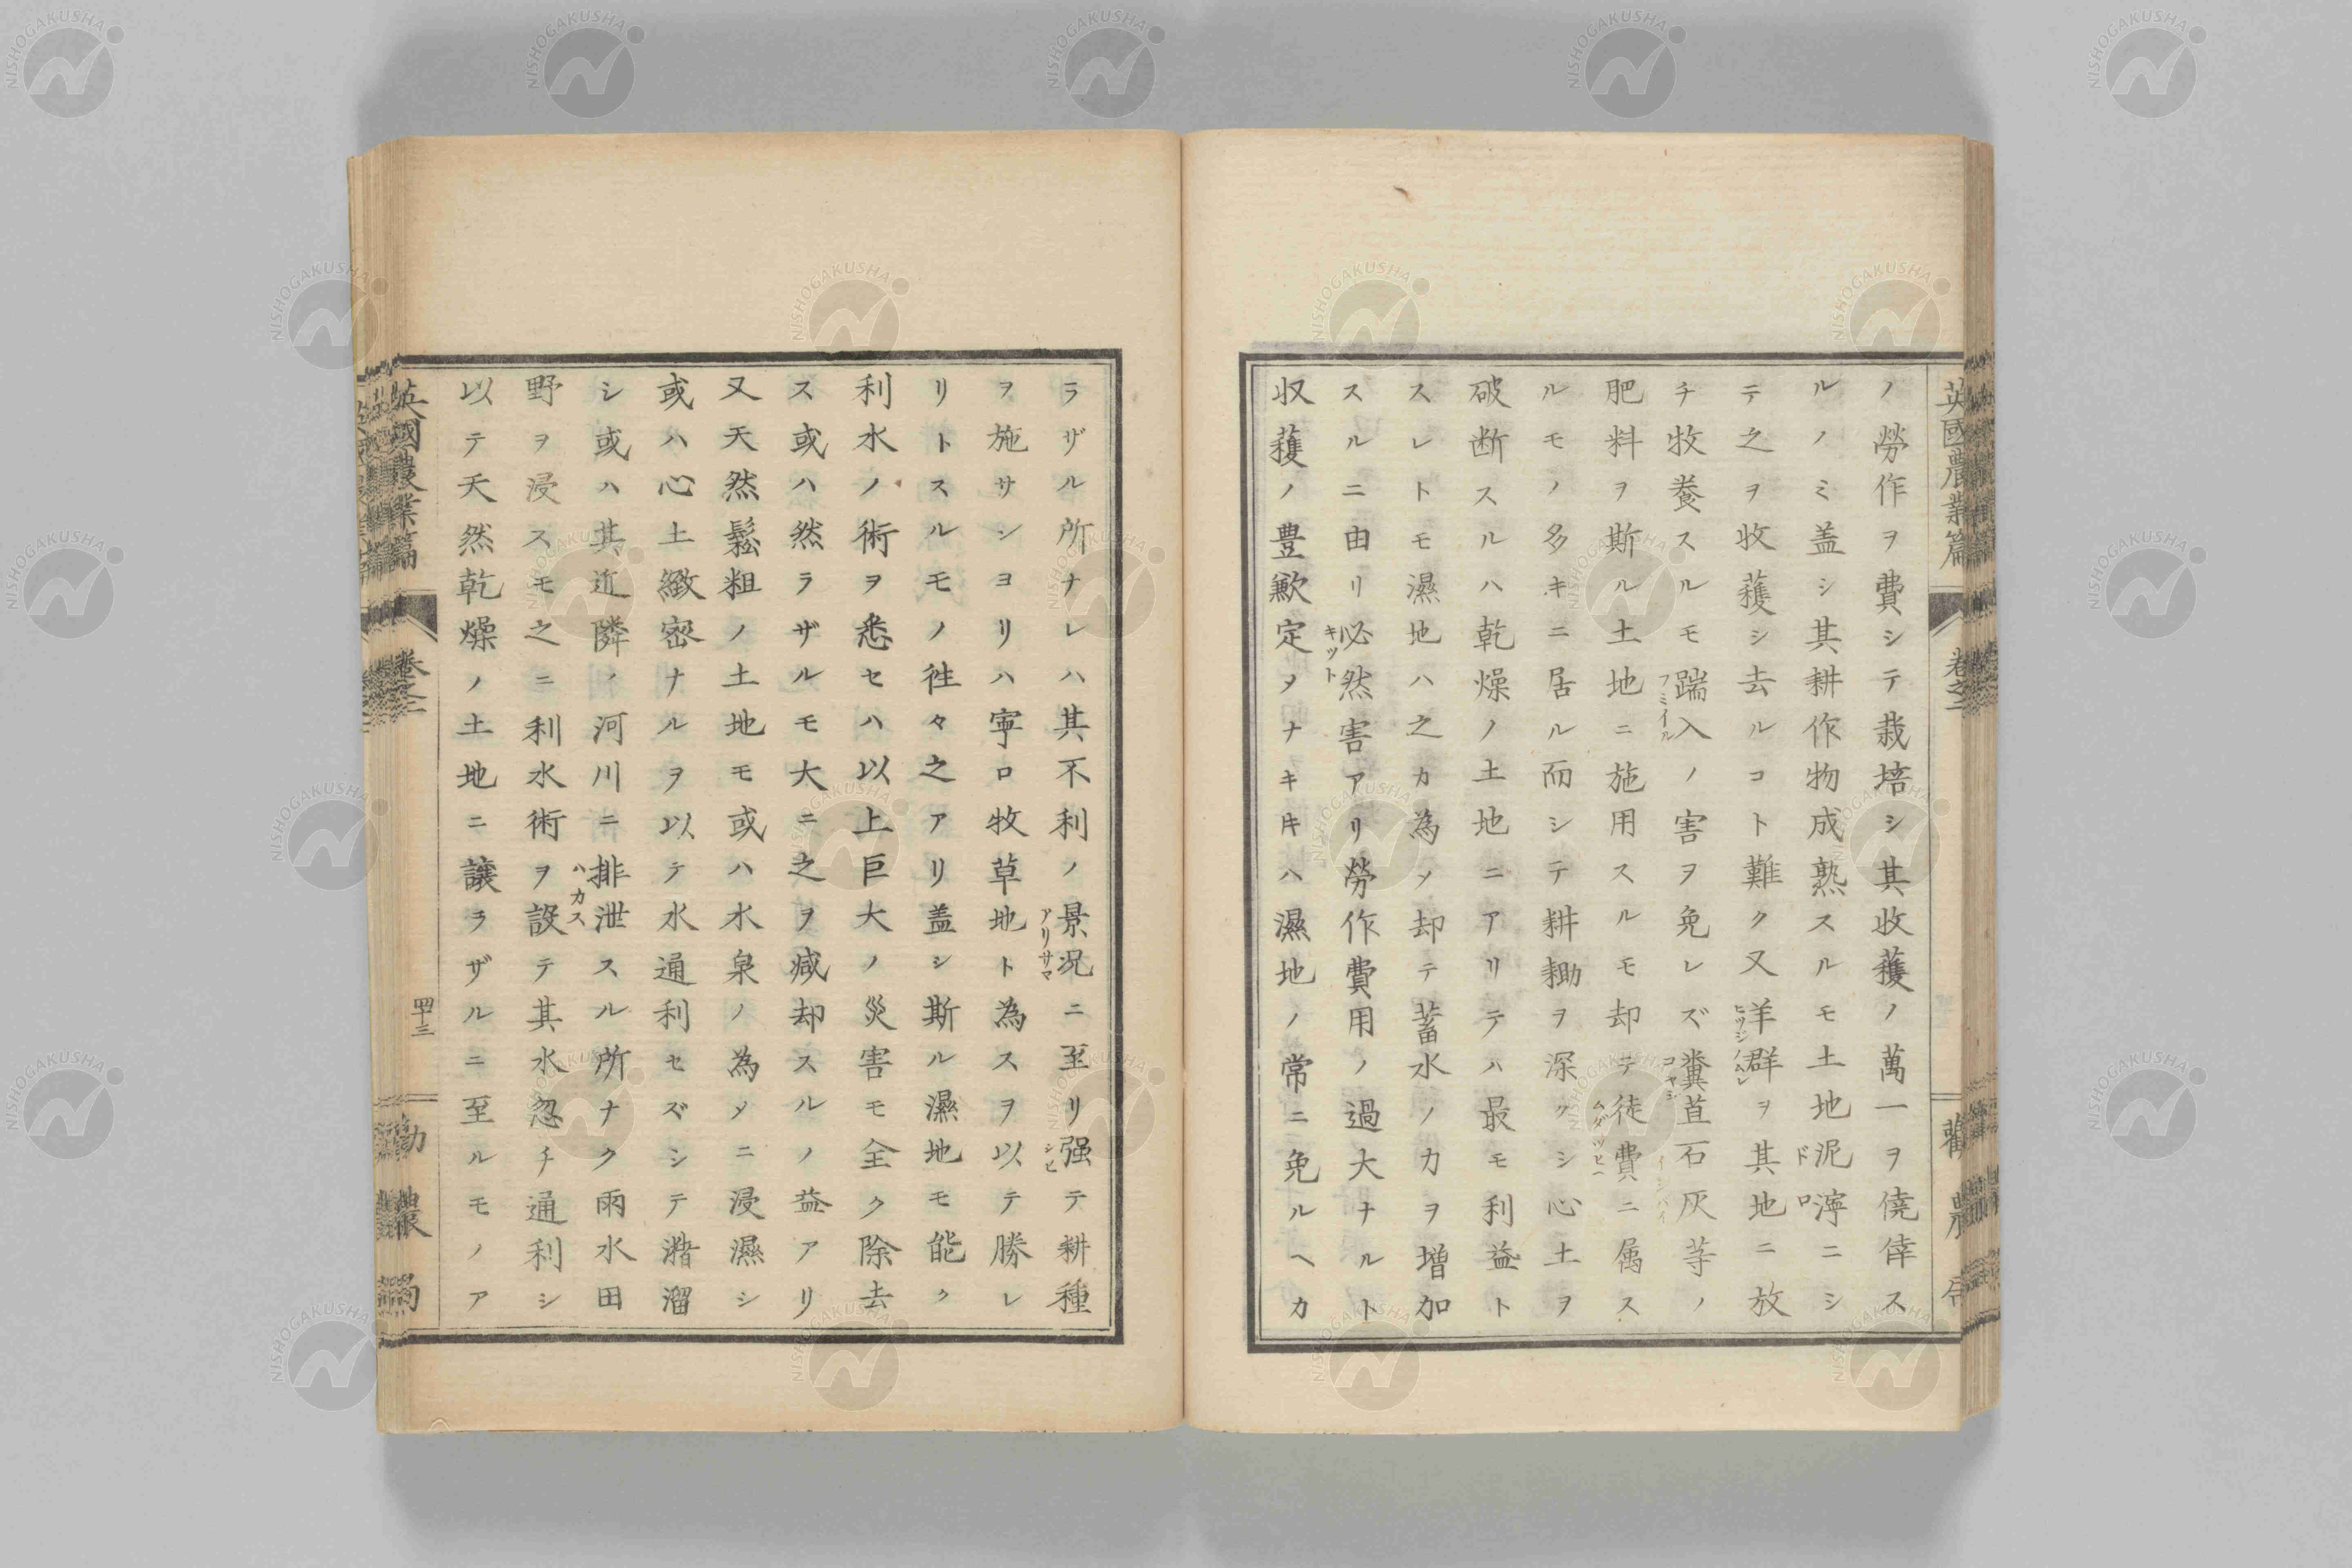 英國農業篇
卷之二
勸農局
ノ勞作ヲ費シテ栽培シ其收穫ノ萬一ヲ僥倖ス
ルノミ盖シ其耕作物成熟スルモ土地泥濘ニシ
ドロ
テ之ヲ收穫シ去ルコト難ク又羊群ヲ其地ニ放
ヒツジノムレ
チ牧養スルモ踹入ノ害ヲ免レズ糞苴石灰等ノ
フミイル
コヤシ
イシバイ
肥料ヲ斯ル土地ニ施用スルモ却テ徒費ニ属ス
ムダツヒヘ
ルモノ多キニ居ル而シテ耕耡ヲ深クシ心土ヲ
破断スルハ乾燥ノ土地ニアリテハ最モ利益ト
スレトモ濕地ハ之カ為メ却テ蓄水ノ力ヲ増加
スルニ由リ必然害アリ勞作費用ノ過大ナルト
キツト
収穫ノ豊歉定メナキトハ濕地ノ常ニ免ルヘカ
ラザル所ナレハ其不利ノ景况ニ至リ强テ耕種
アリサマ
シヒ
ヲ施サシヨリハ寧ロ牧草地ト為スヲ以テ勝レ
リトスルモノ徃々之アリ盖シ斯ル濕地モ能ク
利水ノ術ヲ悉セハ以上巨大ノ災害モ全ク除去
ス或ハ然ラザルモ大ニ之ヲ减却スルノ益アリ
又天然鬆粗ノ土地モ或ハ水泉ノ為メニ浸濕シ
或ハ心土緻密ナルヲ以テ水通利セズシテ潴溜
シ或ハ其近隣ノ河川ニ排泄スル所ナク雨水田
ハカス
野ヲ浸スモ之ニ利水術ヲ設テ其水忽チ通利シ
以テ天然乾燥ノ土地ニ讓ラザルニ至ルモノア
英國農業篇
卷之二
四十三
勸農局
NISHOGAKUSHA